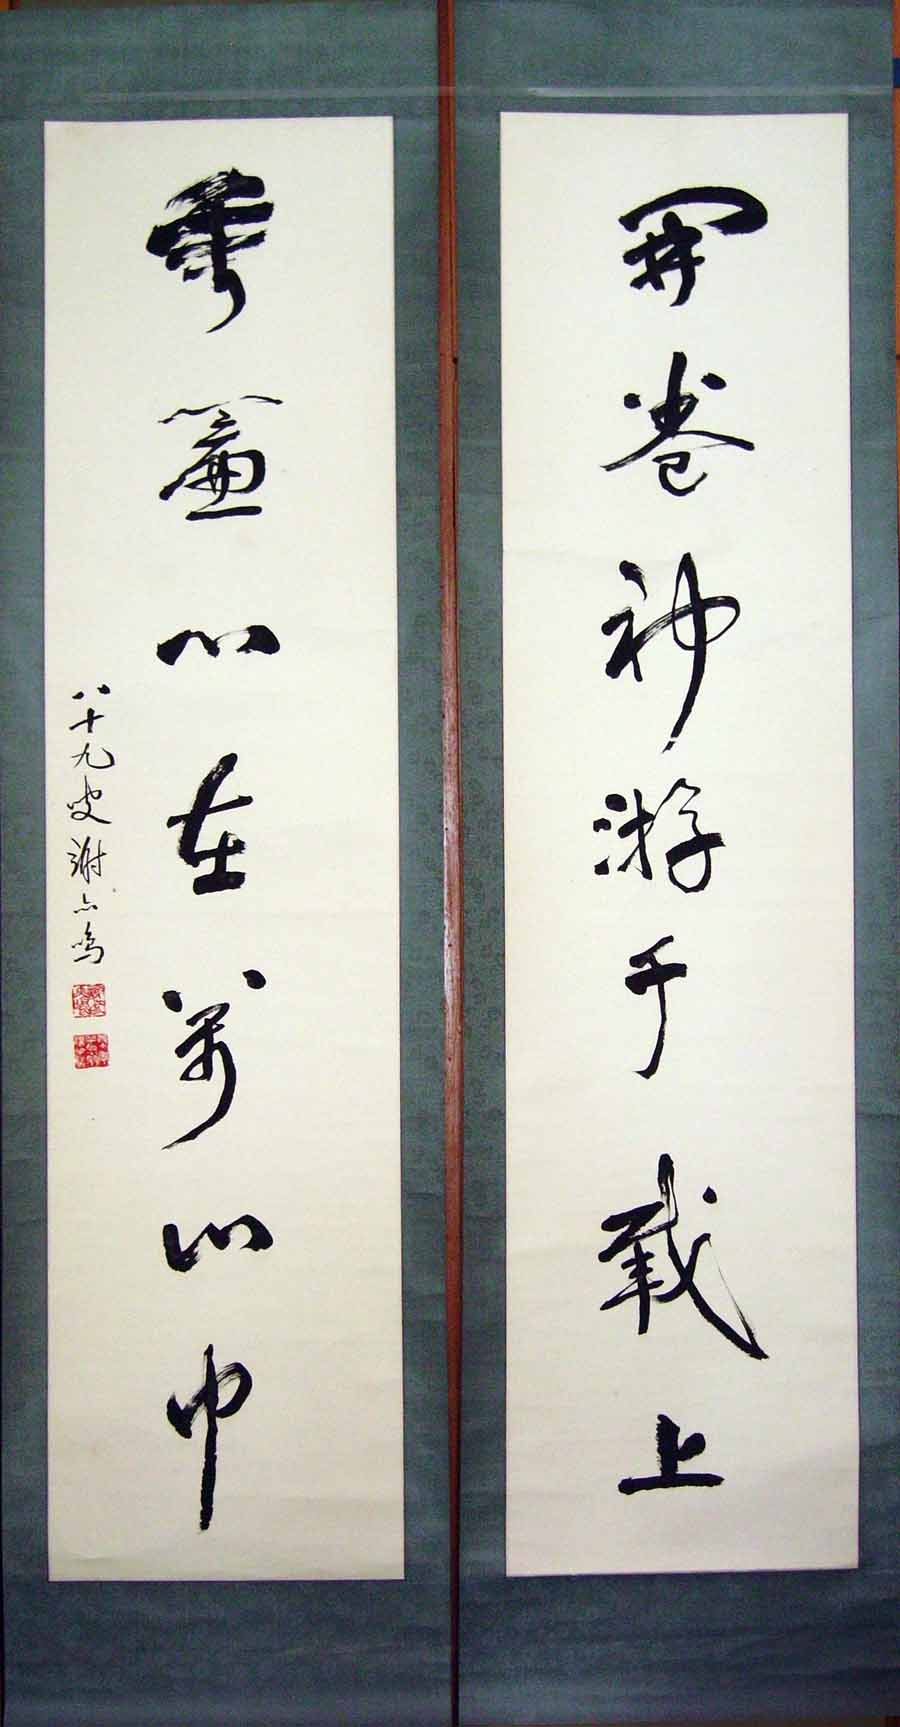 開卷神游千載上
垂簾心在萬山中
八十九叟謝六鳴